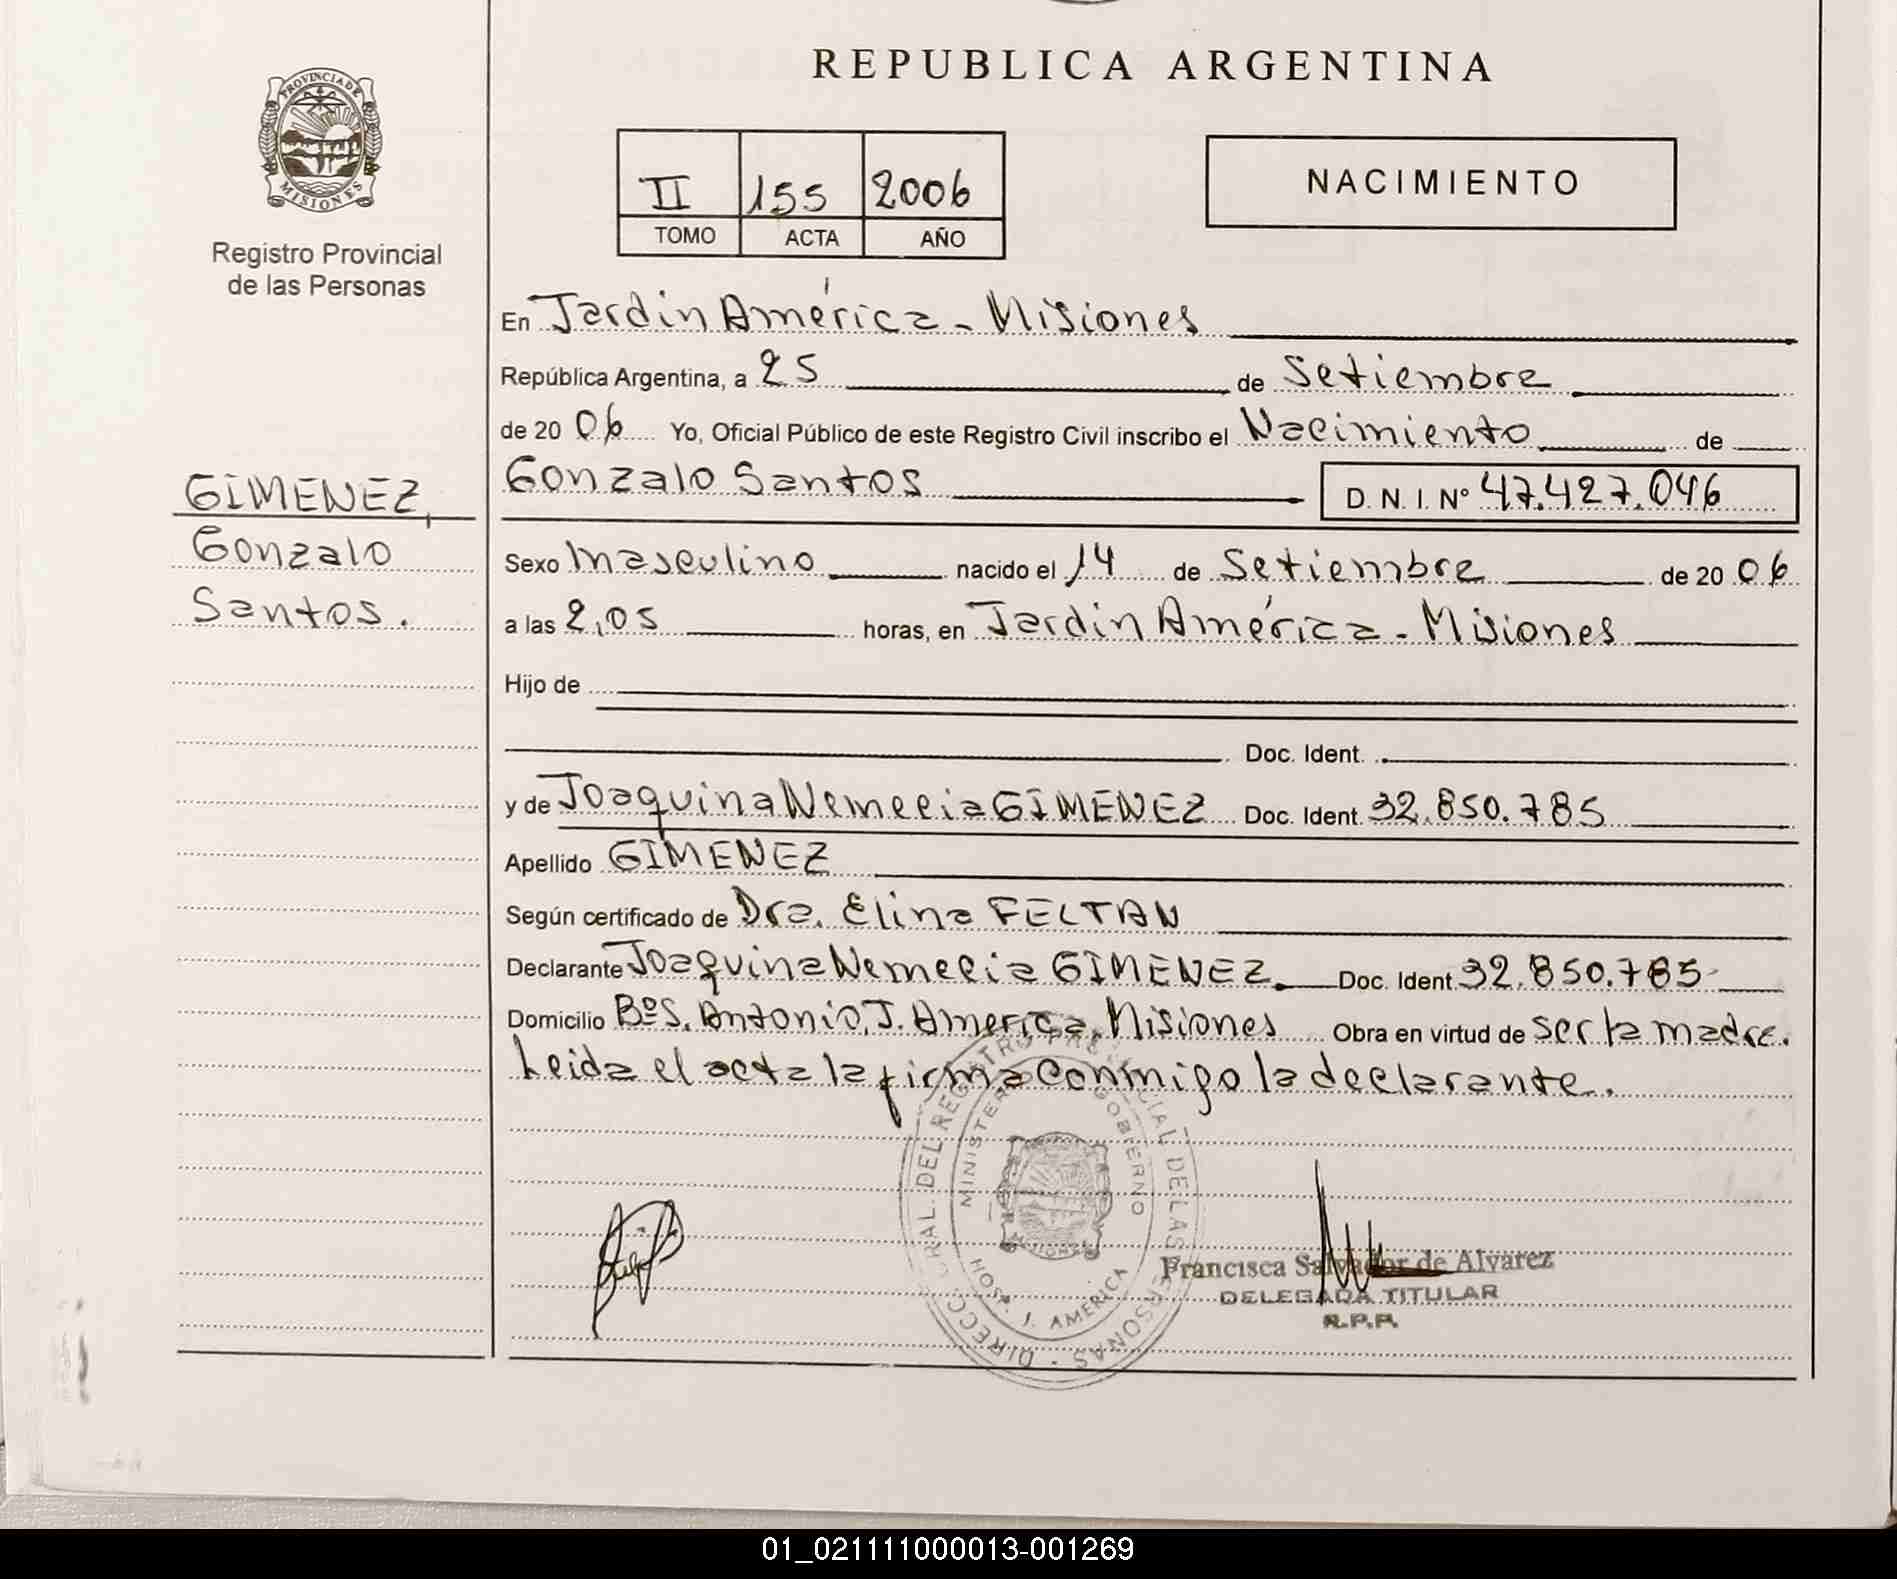 REPUBLICA ARGENTINA
PROVINCIA DE
MISIONES
Registro Provincial
de las Personas
II 155 2006
TOMO ACTA AÑO
NACIMIENTO
GIMENEZ,
Gonzalo
Santos.
En Jardin América - Misiones
República Argentina, a 25 de Setiembre
de 20 06 Yo, Oficial Público de este Registro Civil inscribo el Nacimiento de
Gonzalo Santos D. N. I. Nº 47.427.046
Sexo Masculino nacido el 14 de Setiembre de 20 06
a las 2,05 horas, en Jardin América - Misiones
Hijo de
Doc. Ident.
y de Joaquina Nemecia GIMENEZ Doc. Ident. 32.850.785
Apellido GIMENEZ
Según certificado de Dra. Elina FELTAN
Declarante Joaquina Nemecia GIMENEZ Doc. Ident. 32.850.785
Domicilio Bº S. Antonio, J. America, Misiones Obra en virtud de ser la madre.
Leida el acta la firma conmigo la declarante.
DIRECC. GRAL. DEL REGISTRO PROVINCIAL DE LAS PERSONAS
MINISTERIO GOBIERNO
MISIONES
HOSP. J. AMERICA
Francisca Salvador de Alvarez
DELEGADA TITULAR
R.P.P.
01_021111000013-001269